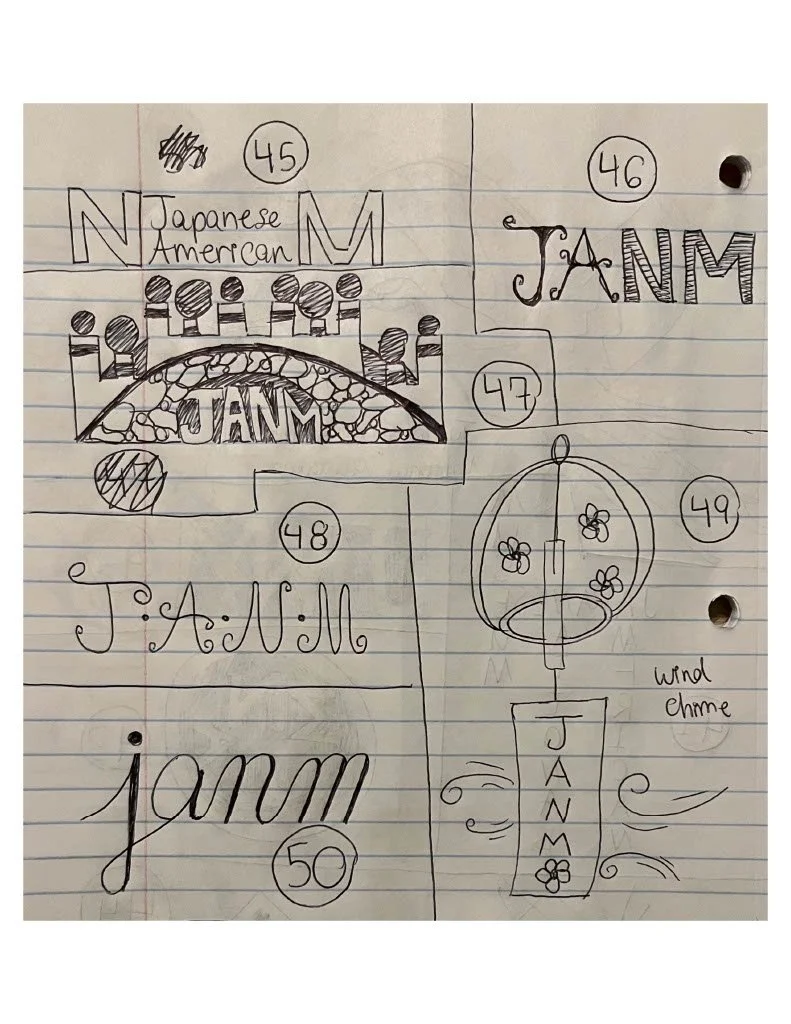 45
N Japanese M
American
46
JANM
47
JANM
48
J.A.N.M
49
wind
chime
J
A
N
M
janm
50